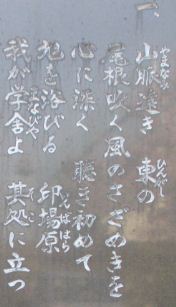 一、
山脈遠き 東の
やまなみ ひんがし
尾根吹く風のさざめきを
心に深く 聴き初めて
旭を浴びる 場原
ばはら
我が学舎よ 其処に立つ
まなびや そこ